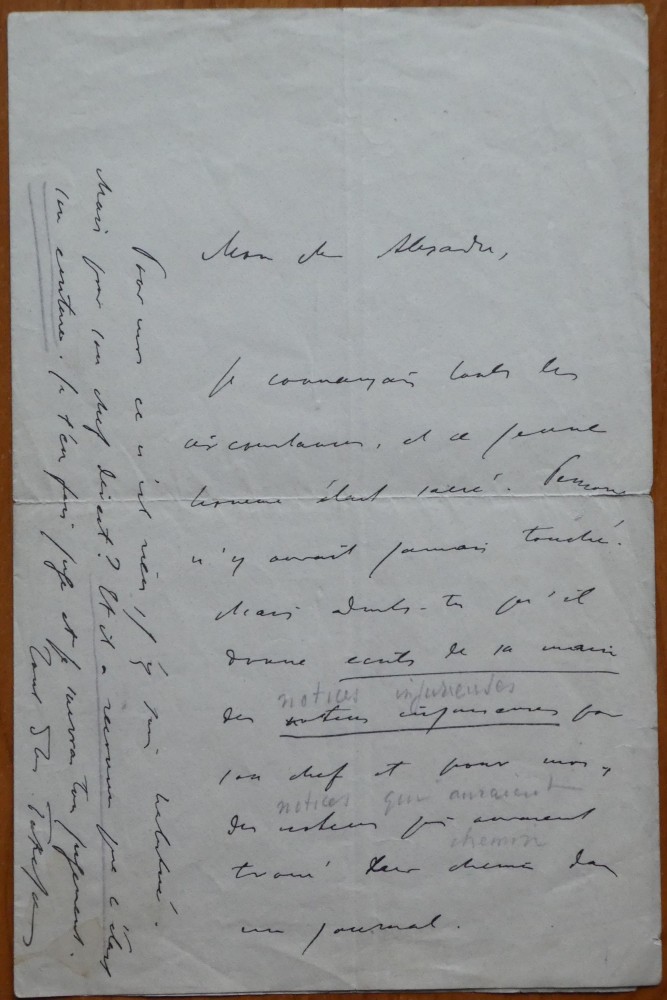 Mon cher Alexandre,
Je connaissais toutes les
circonstances, et ce jeune
homme était sacré. Personne
n'y aurait jamais touché.
Mais admets-tu qu'il
donne écrits de sa main
notices injurieuses
des notices injurieuses pour
son chef et pour moi,
notices qui auraient
des notices qui auraient
chemin
trouvé leur chemin dans
un journal.
Pour moi ce n'est rien, j'y suis habitué.
Mais pour son chef direct? Et il a reconnu que c'était
son écriture. Je t'en fais juge et je suivrai ton jugement.
Tout à toi